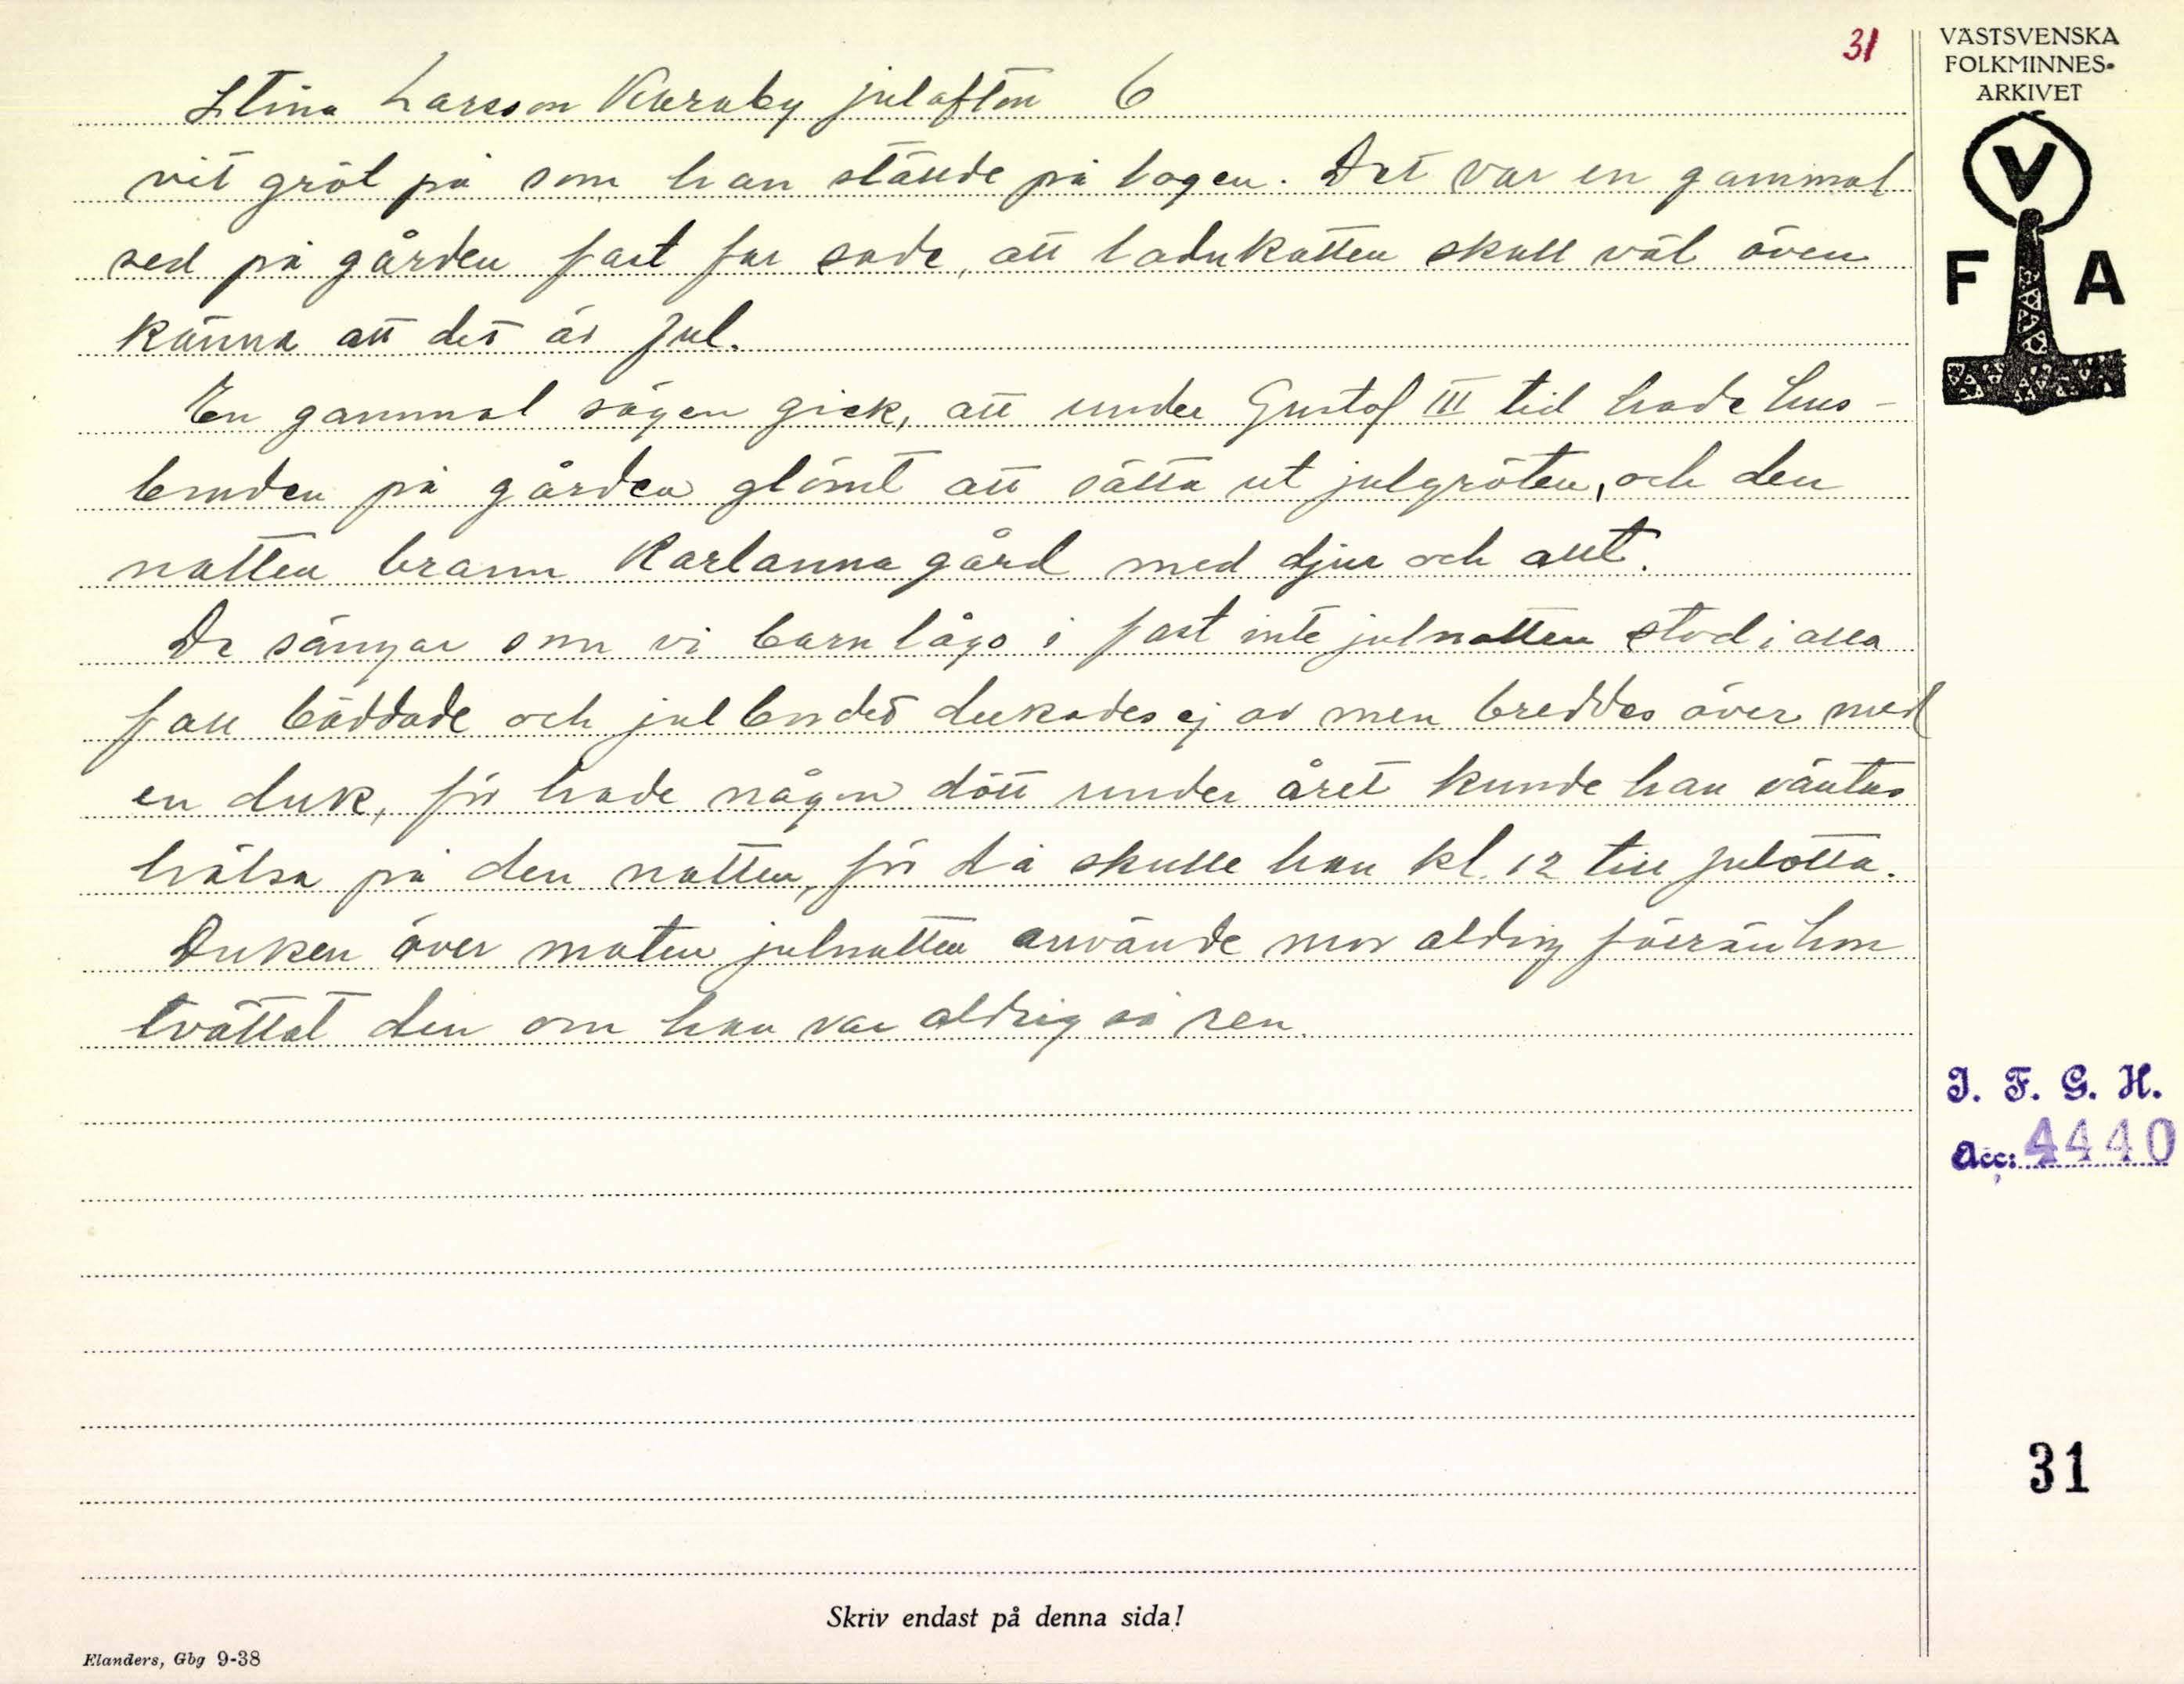 31
VÄSTSVENSKA
FOLKMINNES-
ARKIVET
V
F A
Stina Larsson Karaby julafton 6
vit gröt på som han ställde på logen. Det var en gammal
sed på gården fast far sade, att ladukatten skall väl även
känna att det är jul.
En gammal sägen gick, att under Gustof III tid hade hus-
bonden på gården glömt att sätta ut julgröten, och den
natten brann Karlanna gård med djur och allt.
De sängar som vi barn lågo i fast inte julnatten stod i alla
fall bäddade och julbordet dukades ej av men breddes över med
en duk, för hade någon dött under året kunde han väntas
hälsa på den natten, för då skulle han kl. 12 till julotta.
Duken över maten julnatten använde mor aldrig förrän hon
tvättat den om han var aldrig så ren.
I. F. G. H.
Acc: 4440
31
Skriv endast på denna sida!
Elanders, Gbg 9-38